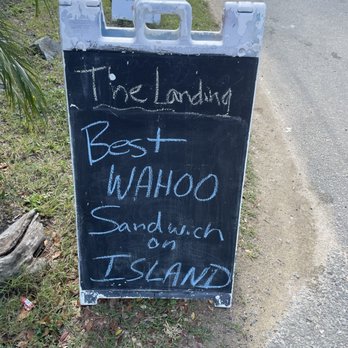 The Landing
Best
WAHOO
Sandwich
on
ISLAND